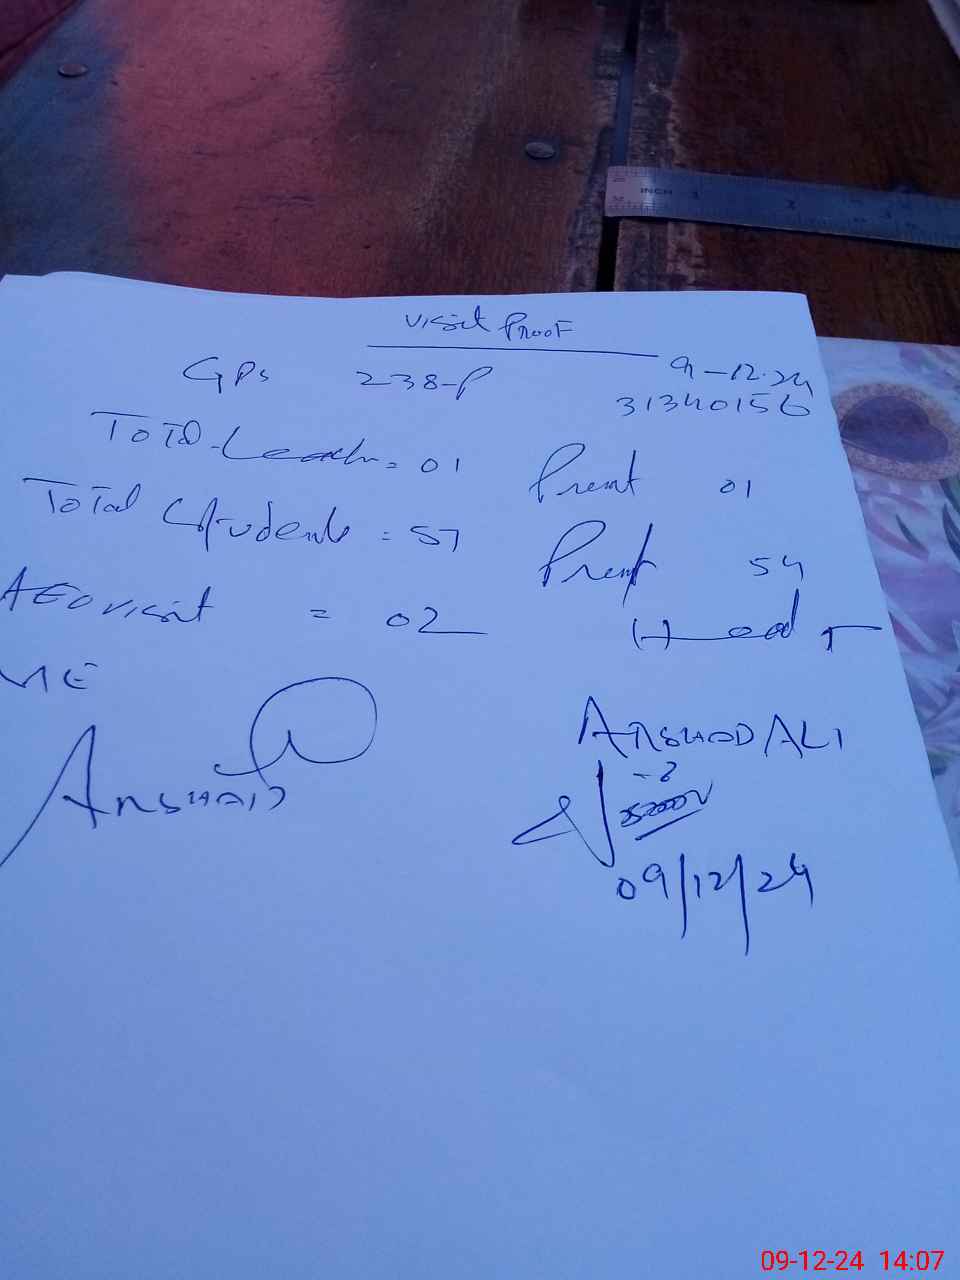 INCH 1 2 3
Visit Proof
GPS 238-P 9-12-24
31340156
Total Teach = 01 Present 01
Total Students = 57 Present 54
AEO visit = 02 Head T
ME
ARSHAD ARSHAD ALI
09/12/24
09-12-24 14:07